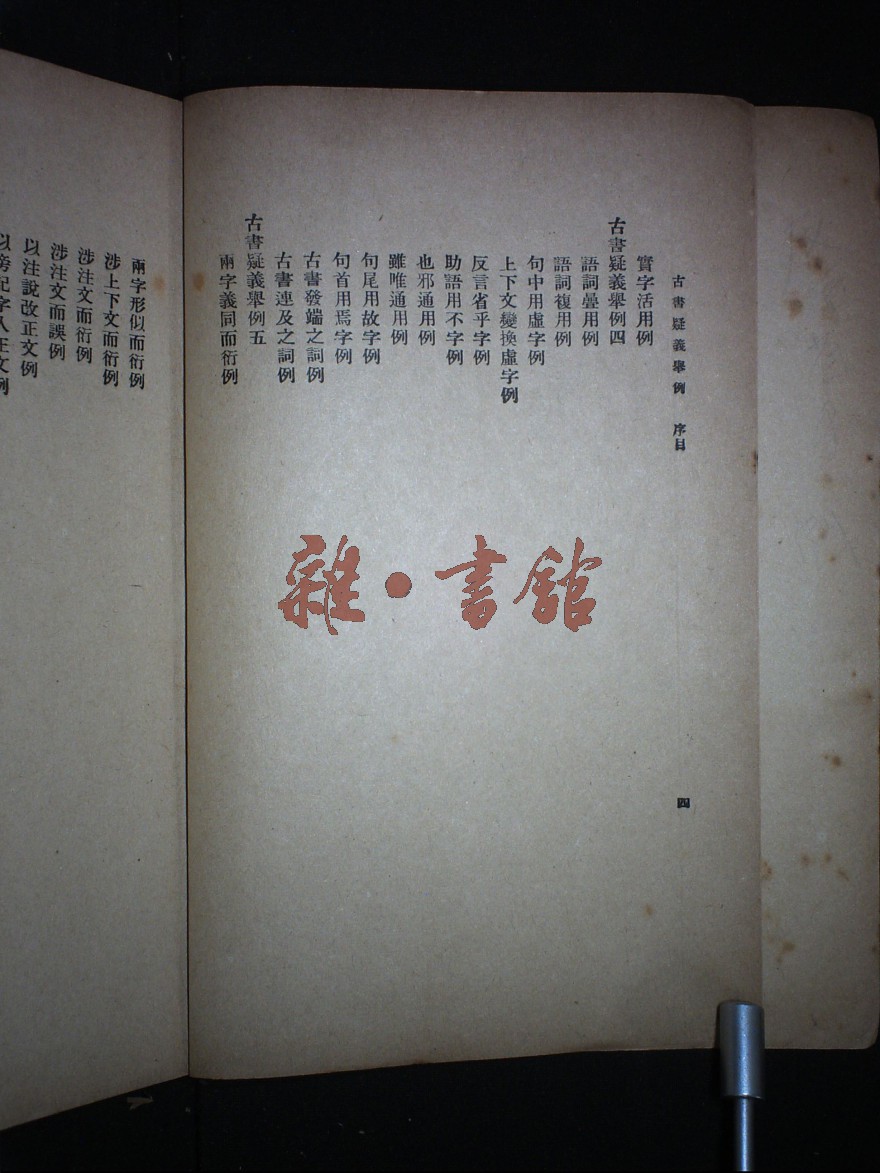 古書疑義舉例 序目
四
實字活用例
古書疑義舉例四
語詞疊用例
語詞複用例
句中用虛字例
上下文變換虛字例
反言省乎字例
助語用不字例
也邪通用例
雖唯通用例
句尾用故字例
句首用焉字例
古書發端之詞例
古書連及之詞例
古書疑義舉例五
兩字義同而衍例
兩字形似而衍例
涉上下文而衍例
涉注文而衍例
涉注文而誤例
以注說改正文例
以旁記字入正文例
雜·書館